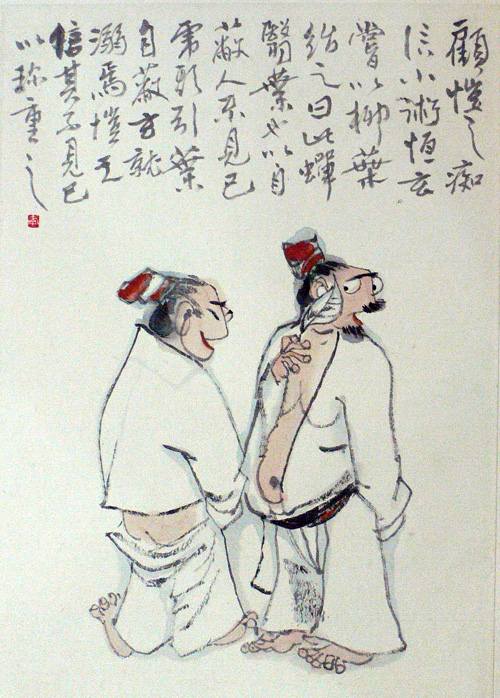 顧愷之痴
信小術恒玄
嘗以柳葉
紿之曰此蟬
翳葉也以自
蔽人不見己
虎頭引葉
自蔽玄就
溺焉愷之
信其不見己
以珍重之